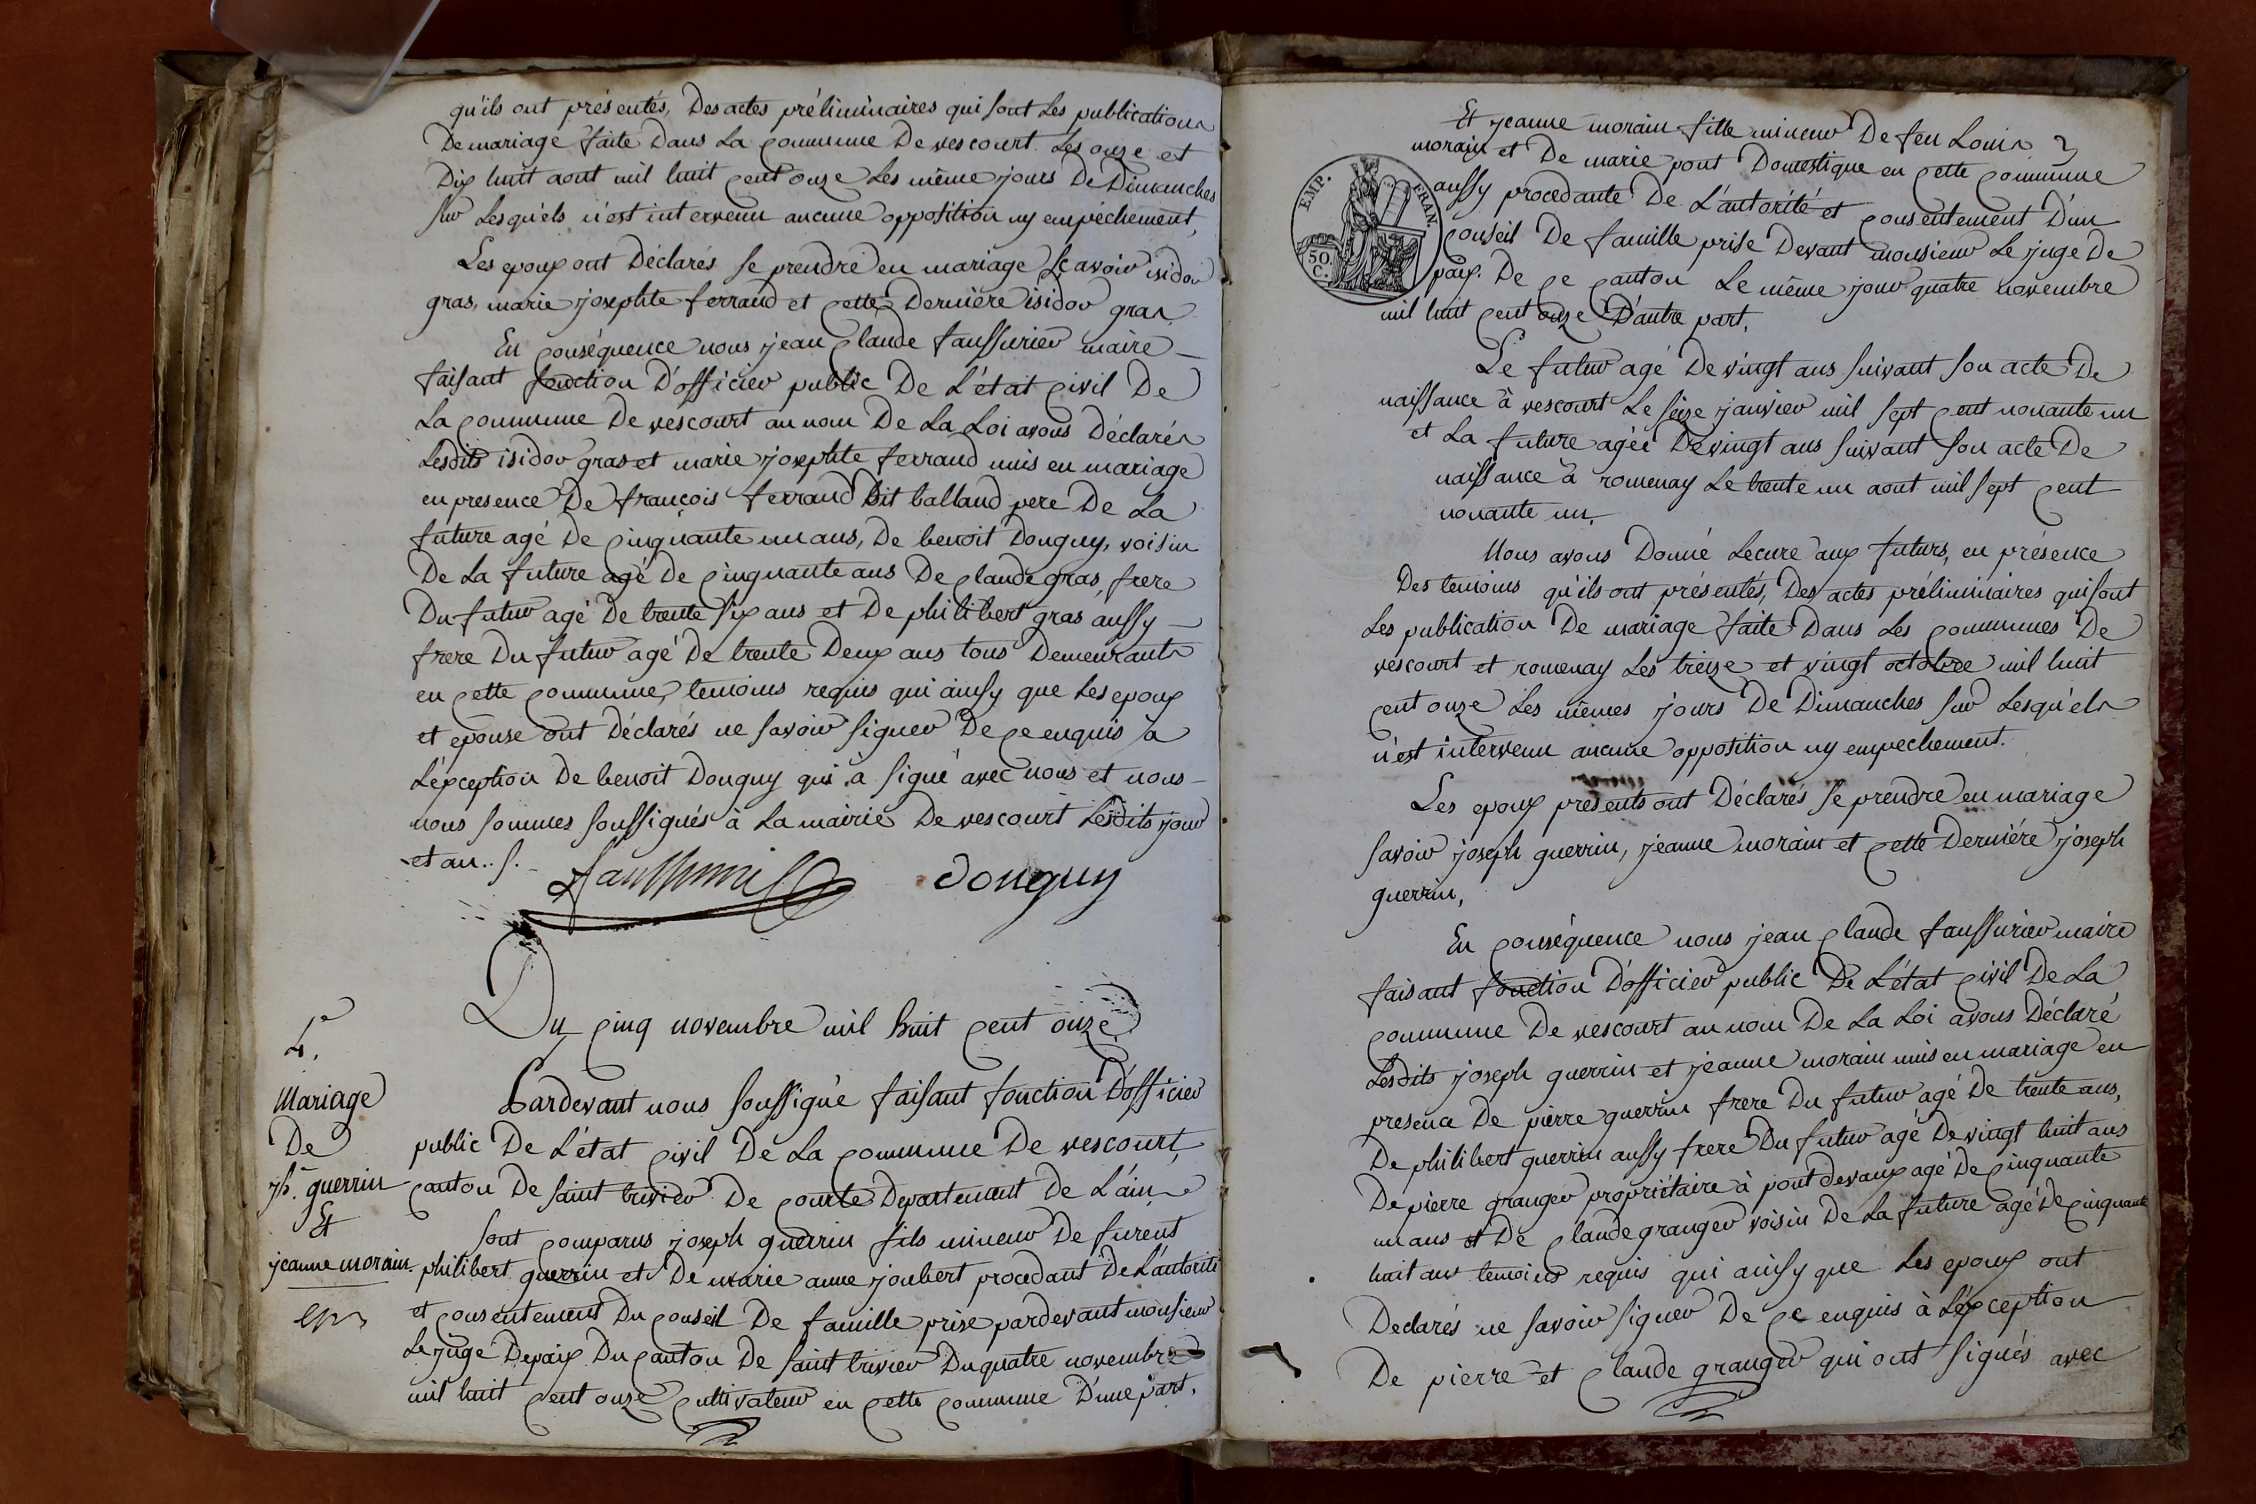 qu'ils ont présentés, Des actes préliminaires qui sont Les publications
De mariage faite Dans La commune De vescourt Les onze et
Dix huit aout mil huit cent onze Les même jours De Dimanches
sur Lesqu'els n'est intervenu aucune opposition ny empéchement,
Les epoux ont Déclarés se prendre en mariage Sçavoir isidor
gras, marie josephte ferrand et cette Dernière isidor gras
En conséquence nous jean claude faussurier maire
faisant fonction D'officier public De L'état civil De
La commune De vescourt au nom De La Loi avons Déclarés
Lesdits isidor gras et marie josephte ferrand unis en mariage
en presence De françois ferrand Dit balland pere De La
future agé De cinquante un ans, De benoit Donguy, voisin
De La future agé De cinquante ans De claude gras, frere
Du futur agé De trente six ans et De philibert gras aussy
frere Du futur agé De trente Deux ans tous Demeurants
en cette commune, temoins requis qui ainsy que Les epoux
et epouse ont Déclarés ne savoir signer De ce enquis à
L'éxception De benoit Donguy qui a signé avec nous et nous
nous sommes soussignés à La mairie De vescourt Lesdits jour
et an.. s.
Donguy
Du cinq novembre mil huit cent onze
4.e
Mariage
De
jh. guerrin
Et
jeanne morain
Pardevant nous soussigné faisant fonction D'officier
public De L'état civil De La commune De vescourt,
canton De saint trivier De courte Departement de L'ain
sont comparus joseph guerrin fils mineur De furent
philibert guerrin et De marie anne joubert procedant De L'autorité
et consentement Du conseil De famille prise pardevant monsieur
Le juge De paix Du canton De saint trivier Du quatre novembre
mil huit cent onze cultivateur en cette commune D'une part,
Et jeanne morain fille mineur De feu Louis
morain et De marie pont Domestique en cette commune
EMP. FRAN.
50. C.
aussy procedante De L'autorité et consentement D'un
conseil De famille prise Devant monsieur Le juge De
paix. De ce canton Le même jour quatre novembre
mil huit cent onze D'autre part,
Le futur agé De vingt ans suivant son acte De
naissance à vescourt Le seize janvier mil sept cent nonante un
et La future agée De vingt ans suivant son acte De
naissance à romenay Le trente un aout mil sept cent
nonante un,
Nous avons Donné Lecure aux futurs, en présence
Des temoins qu'ils ont présentés, Des actes préliminaires qui sont
Les publication De mariage faite Dans Les communes De
vescourt et romenay Les treize et vingt octobre mil huit
cent onze Les mêmes jours De Dimanches sur Lesqu'els
n'est intervenu aucune opposition ny empechement.
Les epoux présents ont Déclarés se prendre en mariage
savoir joseph guerrin, jeanne morain et cette Derniére joseph
guerrin,
En conséquence nous jean claude faussurier maire
faisant fonction D'officier public De L'état civil De La
commune De vescourt au nom De La Loi avons Déclaré
Lesdits joseph guerrin et jeanne morain unis en mariage en
presence De pierre guerrin frere Du futur agé De trente ans,
De philibert guerrin aussy frere Du futur agé De vingt huit ans
De pierre granger propriétaire à pont devaux agé De cinquante
un ans et De claude granger voisin De La future agé De cinquante
huit ans temoins requis qui ainsy que Les epoux ont
Declarés ne savoir signer De ce enquis à L'éxception
De pierre et claude granger qui ont signés avec